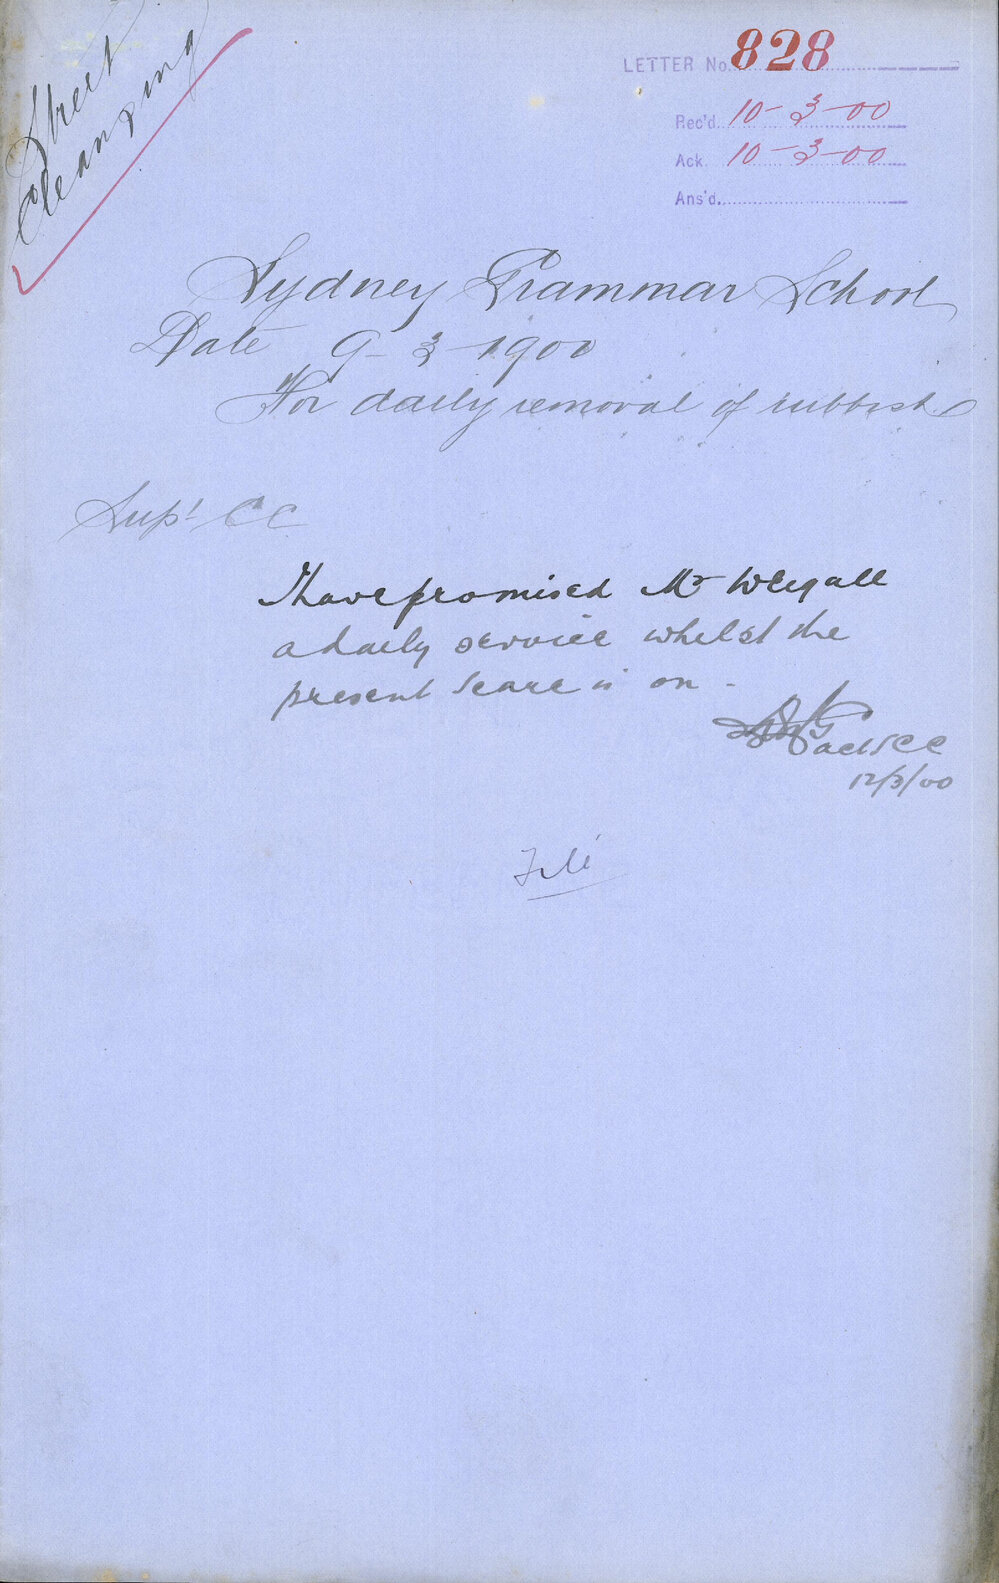 Street
Cleansing
LETTER No. 828
Rec'd. 10-3-00
Ack. 10-3-00
Ans'd.
Sydney Grammar School
Date 9-3-1900
For daily removal of rubbish
Supt C C
I have promised Mr Weigall
a daily service whilst the
present scare is on -
12/3/00
File